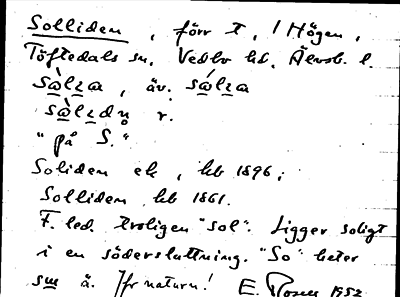 Solliden, förr t. / Högen,
Töftedals sn, Vedbo hd, Älvsb. l.
sɷ̀lɩa, äv. sɷ́lɩa
sɷ̀lɩdn̥ r.
"på S."
Soliden ek, hb 1896;
Solliden hb 1861.
F. led. troligen "sol". Ligger soligt
i en södersluttning. "So" heter
sɯ ä. Jfr naturn! E. 1952